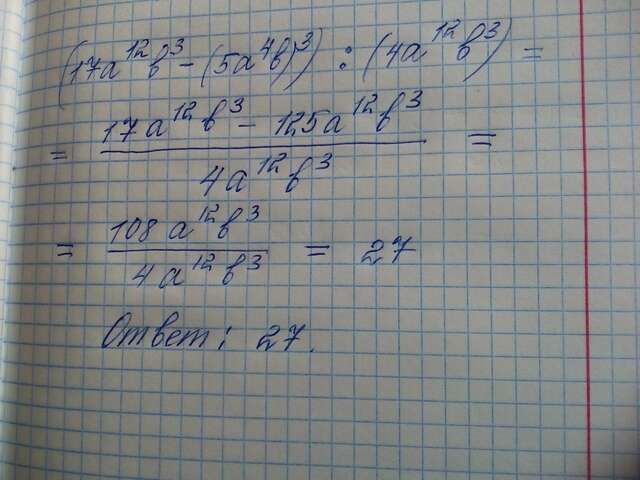 (17a¹²b³ - (5a⁴b)³) : (4a¹²b³) =
= (17a¹²b³ - 125a¹²b³) / (4a¹²b³) =
= 108a¹²b³ / 4a¹²b³ = 27
Ответ: 27.